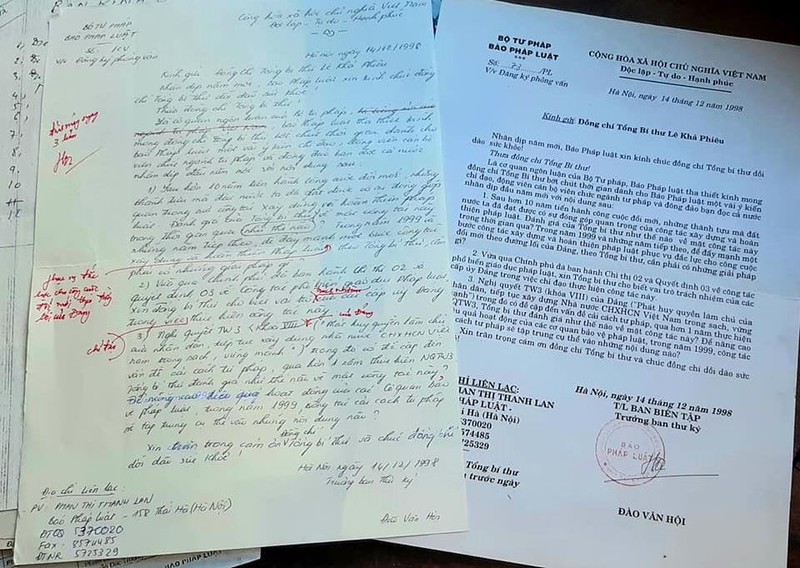 Cộng hòa xã hội chủ nghĩa Việt Nam
Độc lập - Tự do - Hạnh phúc
BỘ TƯ PHÁP
BÁO PHÁP LUẬT
Số: /CV
V/v Đăng ký phỏng vấn
Hà Nội ngày 14/12/1998
Kính gửi Đồng chí Tổng bí thư Lê Khả Phiêu
Nhân dịp năm mới, Báo Pháp luật xin kính chúc đồng
chí Tổng bí thư dồi dào sức khỏe!
Thưa đồng chí Tổng bí thư!
Là cơ quan ngôn luận của Bộ tư pháp,
báo Pháp luật tha thiết kính
mong đồng chí Tổng bí thư bớt chút thời gian dành cho
báo Pháp luật một vài ý kiến chỉ đạo, động viên cán bộ
viên chức ngành tư pháp và đông đảo bạn đọc cả nước
nhân dịp đầu năm mới với nội dung sau:
1) Sau hơn 10 năm tiến hành công cuộc đổi mới, những
thành tựu mà đất nước ta đã đạt được có sự đóng góp
quan trọng của công tác xây dựng và hoàn thiện pháp
luật. Đánh giá của Tổng bí thư về mặt công tác này
trong thời gian qua như thế nào? Trong năm 1999 và
những năm tiếp theo, để đẩy mạnh một bước công tác
xây dựng và hoàn thiện pháp luật theo Tổng bí thư, cần
phải có những giải pháp gì?
2) Vừa qua Chính phủ đã ban hành Chỉ thị 02 và
quyết định 03 về công tác phổ biến giáo dục Pháp luật
xin đồng chí Tổng bí thư cho biết vai trò của các cấp ủy Đảng
trong việc thực hiện công tác này
chỉ đạo
3) Nghị quyết TW3 (khóa VIII) ("Phát huy quyền làm chủ
của nhân dân, tiếp tục xây dựng nhà nước CHXHCN Việt
Nam trong sạch, vững mạnh") trong đó có đề cập đến
vấn đề cải cách tư pháp, qua hơn 1 năm thực hiện NQTW3
Tổng bí thư đánh giá như thế nào về mặt công tác này?
Để nâng cao hiệu quả hoạt động của các cơ quan bảo
vệ pháp luật, trong năm 1999, công tác cải cách tư pháp
sẽ tập trung cụ thể vào những nội dung nào?
Xin trân trọng cảm ơn đồng chí Tổng bí thư và chúc đồng chí
dồi dào sức khỏe!
Hà Nội ngày 14/12/1998
Trưởng ban thư ký
Đào Văn Hội
Địa chỉ liên lạc:
PV: PHAN THỊ THANH LAN
Báo Pháp luật - 158 Thái Hà (Hà Nội)
ĐTCQ 5370020
Fax - 8574485
ĐTNR 5725329
BỘ TƯ PHÁP
BÁO PHÁP LUẬT
Số: 73 /PL
V/v Đăng ký phỏng vấn
CỘNG HÒA XÃ HỘI CHỦ NGHĨA VIỆT NAM
Độc lập - Tự do - Hạnh phúc
Hà Nội, ngày 14 tháng 12 năm 1998
Kính gửi: Đồng chí Tổng Bí thư Lê Khả Phiêu
Nhân dịp năm mới, Báo Pháp luật xin kính chúc đồng chí Tổng Bí thư dồi
dào sức khỏe!
Thưa đồng chí Tổng Bí thư!
Là cơ quan ngôn luận của Bộ Tư pháp, Báo Pháp luật tha thiết kính mong
đồng chí Tổng Bí thư bớt chút thời gian dành cho Báo Pháp luật một vài ý kiến
chỉ đạo, động viên cán bộ viên chức ngành tư pháp và đông đảo bạn đọc cả nước
nhân dịp đầu năm mới với nội dung sau:
1. Sau hơn 10 năm tiến hành công cuộc đổi mới, những thành tựu mà đất
nước ta đã đạt được có sự đóng góp quan trọng của công tác xây dựng và hoàn
thiện pháp luật. Đánh giá của Tổng Bí thư như thế nào về mặt công tác này
trong thời gian qua? Trong năm 1999 và những năm tiếp theo, để đẩy mạnh một
bước công tác xây dựng và hoàn thiện pháp luật phục vụ đắc lực cho công cuộc
đổi mới theo đường lối của Đảng, theo Tổng Bí thư, cần phải có những giải pháp
gì?
2. Vừa qua Chính phủ đã ban hành Chỉ thị 02 và Quyết định 03 về công tác
phổ biến giáo dục pháp luật, xin Tổng Bí thư cho biết vai trò trách nhiệm của các
cấp ủy Đảng trong việc chỉ đạo thực hiện công tác này
3. Nghị quyết TW3 (khóa VIII) của Đảng ("Phát huy quyền làm chủ của
nhân dân, tiếp tục xây dựng Nhà nước CHXHCN Việt Nam trong sạch, vững
mạnh") trong đó có đề cập đến vấn đề cải cách tư pháp, qua hơn 1 năm thực hiện
NQTW3, Tổng bí thư đánh giá như thế nào về mặt công tác này? Để nâng cao
hiệu quả hoạt động của các cơ quan bảo vệ pháp luật, trong năm 1999, công tác
cải cách tư pháp sẽ tập trung cụ thể vào những nội dung nào?
Xin trân trọng cám ơn đồng chí Tổng Bí thư và chúc đồng chí dồi dào sức
CHỈ LIÊN LẠC:
PHAN THỊ THANH LAN
PHÁP LUẬT -
Hà (Hà Nội)
370020
574485
725329
Tổng Bí thư
trước ngày
Hà Nội, ngày 14 tháng 12 năm 1998
T/L BAN BIÊN TẬP
Trưởng ban thư ký
BÁO
PHÁP LUẬT
ĐÀO VĂN HỘI